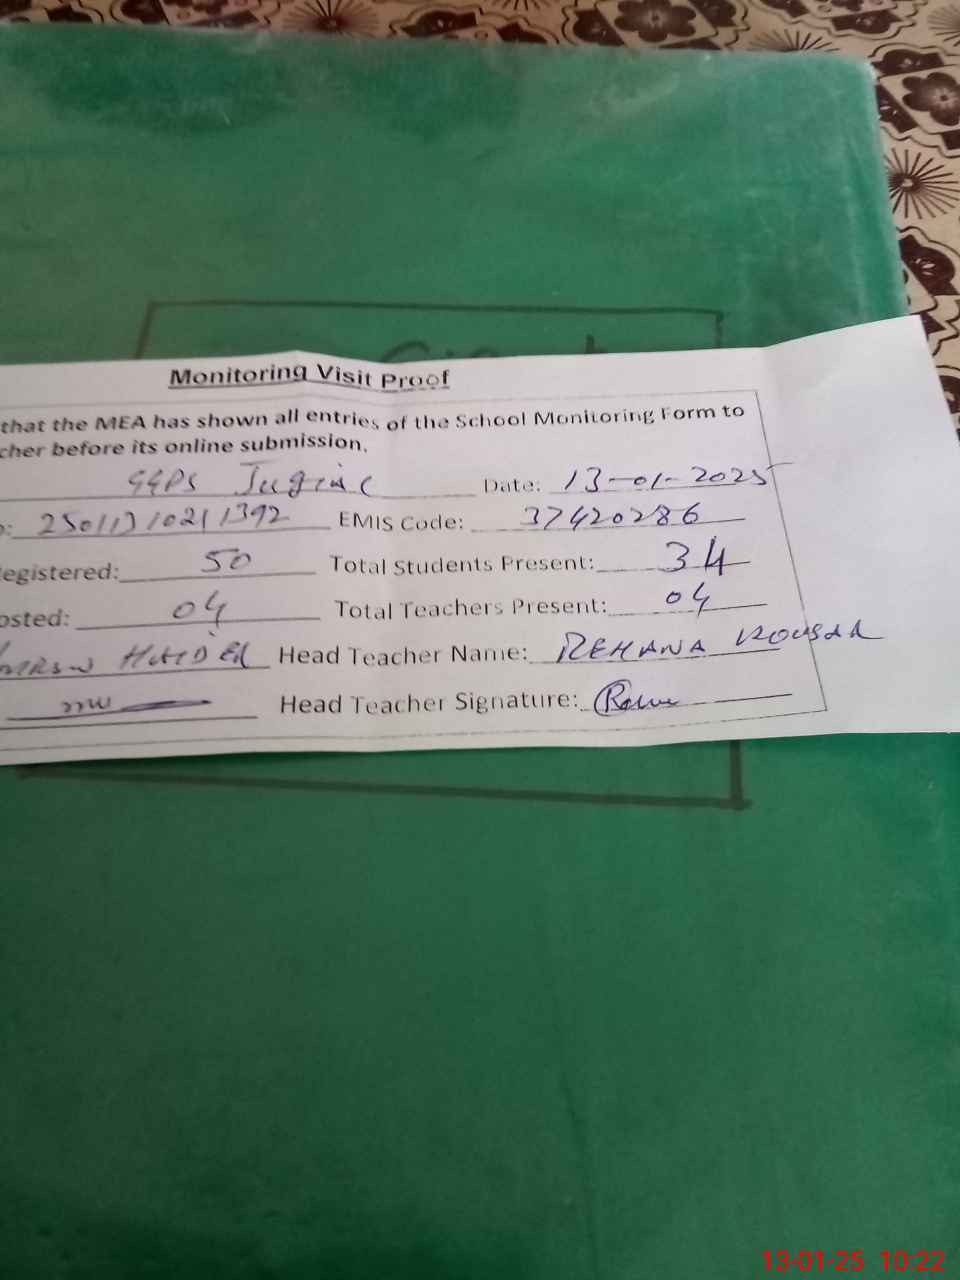 Monitoring Visit Proof
that the MEA has shown all entries of the School Monitoring Form to
cher before its online submission.
GGPS Date: 13-01-2025
EMIS Code: 37420286
egistered: 50 Total Students Present: 34
osted: 04 Total Teachers Present: 04
Head Teacher Name: REHANA KOUSAR
Head Teacher Signature:
13-01-25 10:22